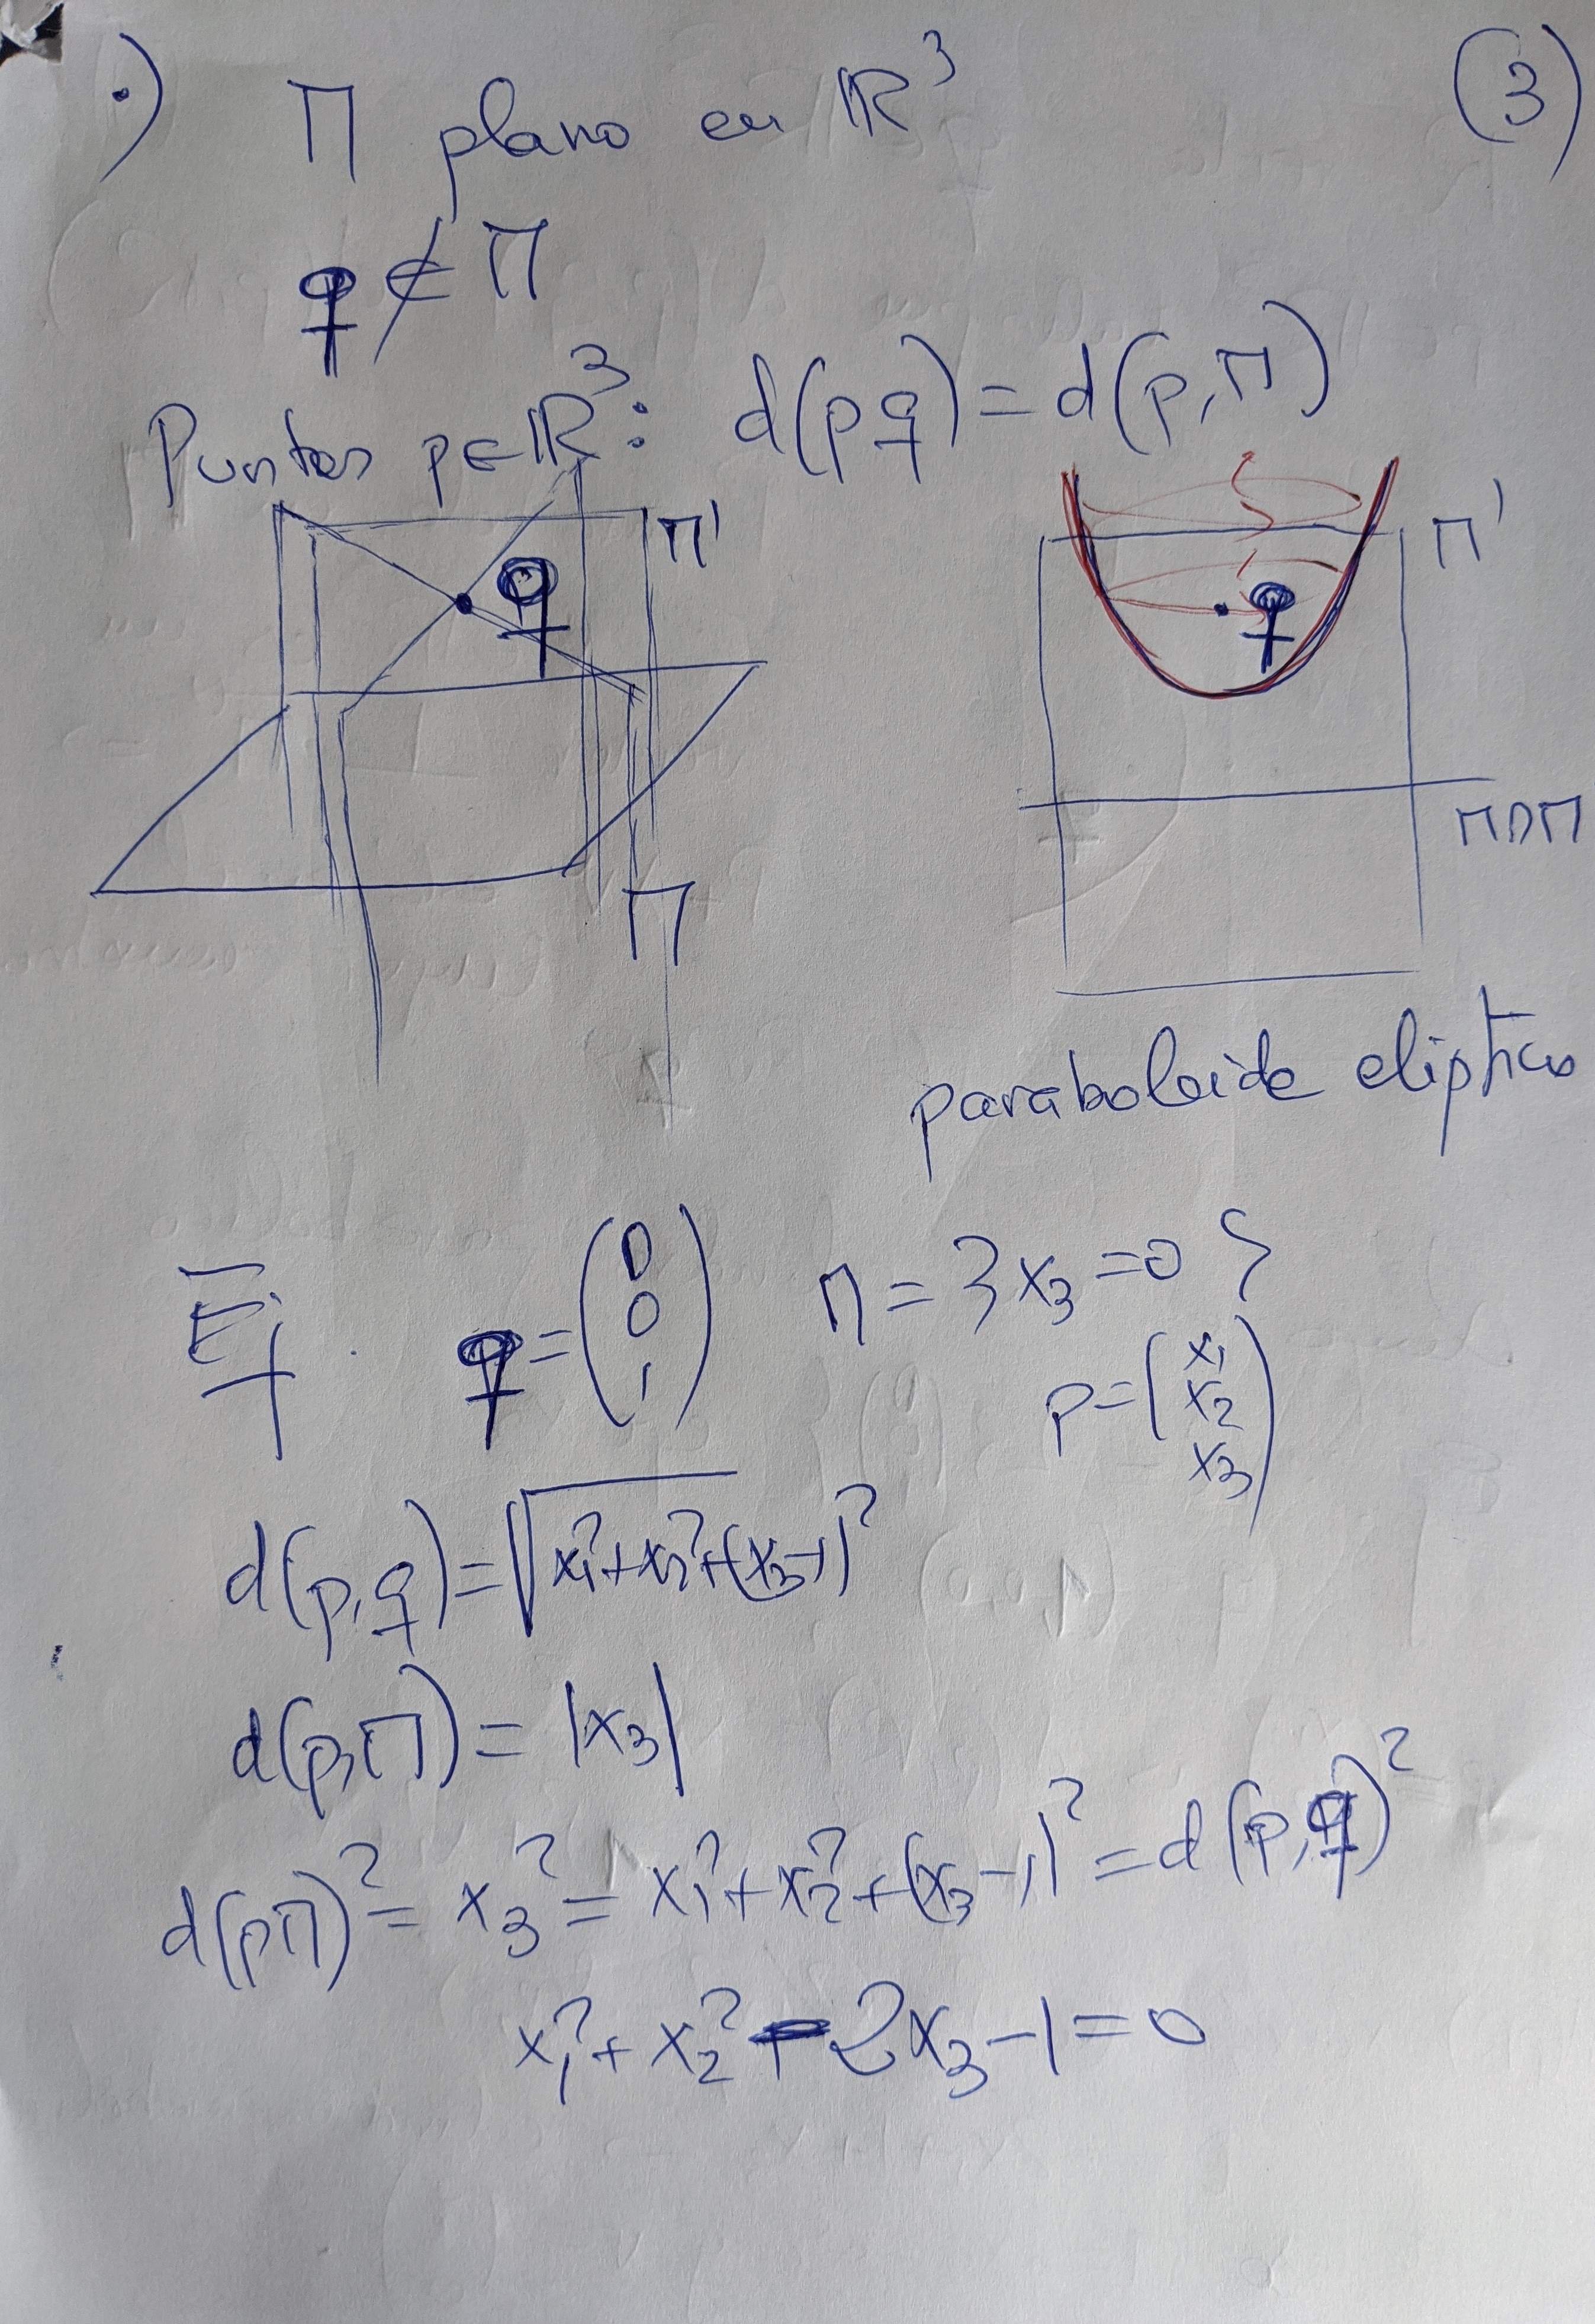 ·) Π plano en ℝ³ (3)
q ∉ Π
Puntos p∈ℝ³: d(p q) = d(p, Π)
Π' q Π'
q
Π∩Π
Π
paraboloide elíptico
Ej. q = (0 0 1) Π = {x₃ = 0}
p = (x₁ x₂ x₃)
d(p, q) = √x₁² + x₂² + (x₃-1)²
d(p, Π) = |x₃|
d(p Π)² = x₃² = x₁² + x₂² + (x₃-1)² = d(p, q)²
x₁² + x₂² - 2x₃ - 1 = 0